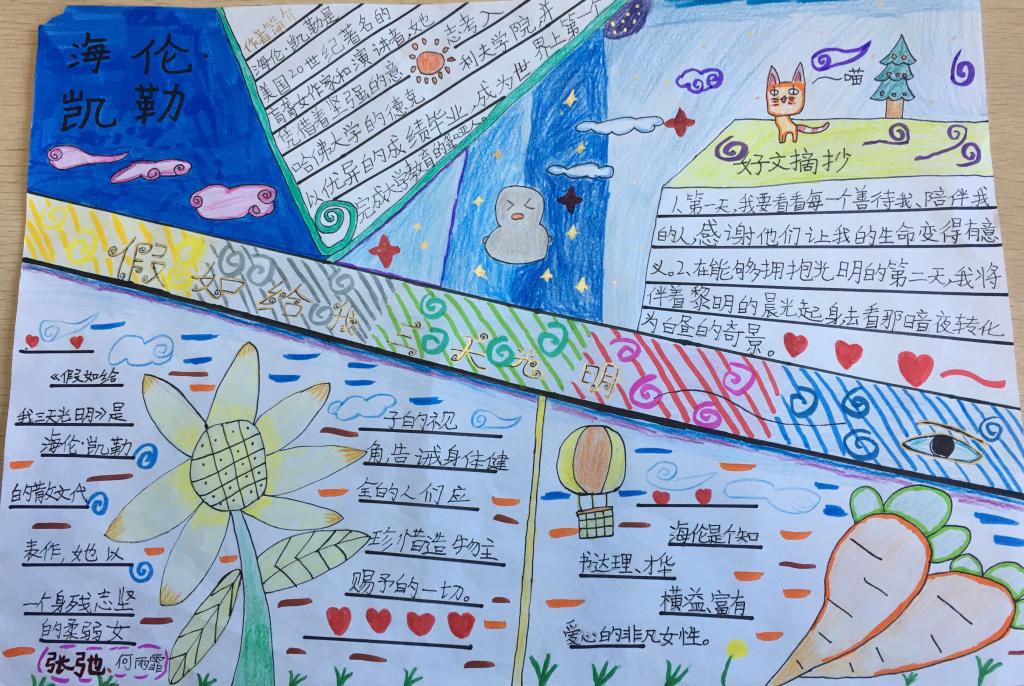 海伦·
凯勒
作者简介
海伦·凯勒是
美国20世纪著名的
盲聋女作家和演讲者,她
凭借着坚强的意志考入
哈佛大学的德克利夫学院,并
以优异的成绩毕业,成为世界上第一个
完成大学教育的盲聋人。
喵
好文摘抄
1.第一天,我要看看每一个善待我、陪伴我
的人,感谢他们让我的生命变得有意
义。2.在能够拥抱光明的第二天,我将
伴着黎明的晨光起身去看那暗夜转化
为白昼的奇景。
假如给我三天光明
《假如给
我三天光明》是
海伦·凯勒
的散文代
表作,她以
一个身残志坚
的柔弱女
子的视
角,告诫身体健
全的人们应
珍惜造物主
赐予的一切。
海伦是个知
书达理、才华
横溢、富有
爱心的非凡女性。
张弛、何雨霏